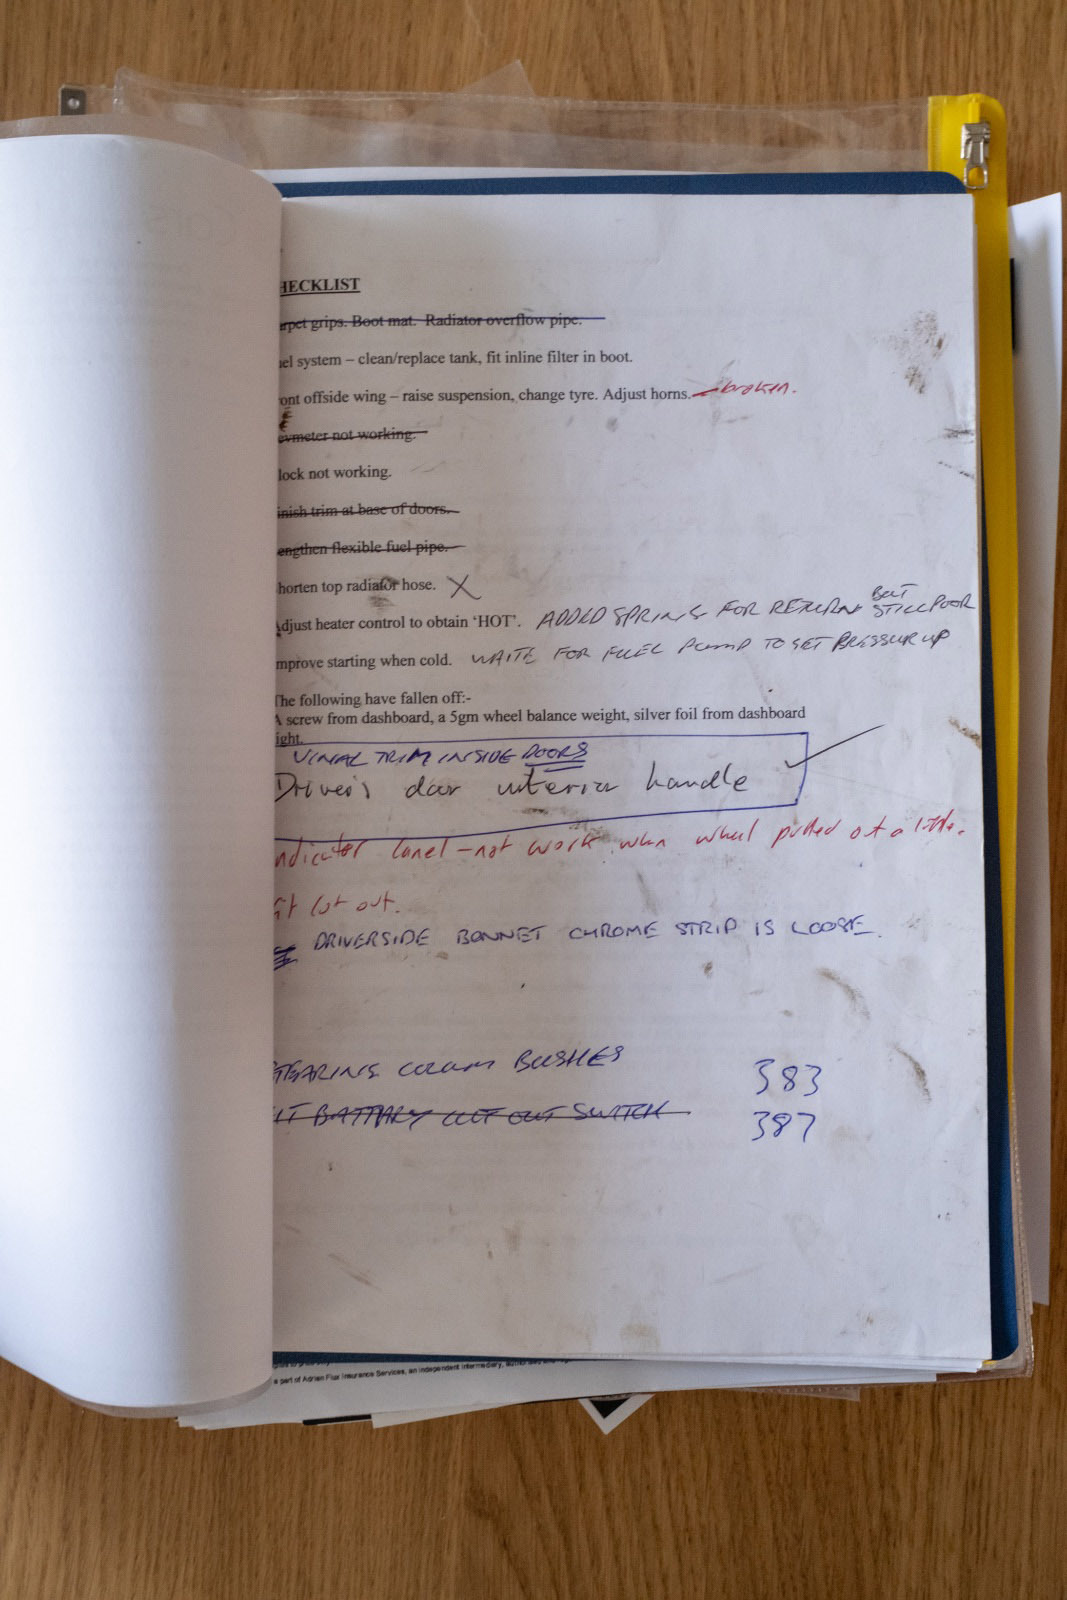 HECKLIST
arpet grips. Boot mat. Radiator overflow pipe.
uel system – clean/replace tank, fit inline filter in boot.
ont offside wing – raise suspension, change tyre. Adjust horns. – broken.
evmeter not working.
lock not working.
inish trim at base of doors.
engthen flexible fuel pipe.
horten top radiator hose. X
Adjust heater control to obtain ‘HOT’. ADDED SPRINGS FOR RETURN BUT STILL POOR
mprove starting when cold. WAITE FOR FUEL PUMP TO GET PRESSUR UP
The following have fallen off:-
A screw from dashboard, a 5gm wheel balance weight, silver foil from dashboard
ight.
VINAL TRIM INSIDE DOORS
Driver's door interior handle
ndicator – not work when wheel pulled out a little.
fit cut out.
DRIVERSIDE BONNET CHROME STRIP IS LOOSE.
TEARING COLUM BUSHES 383
IT BATTARY CUT OUT SWITCH 387
a part of Adrian Flux Insurance Services, an independent intermediary,